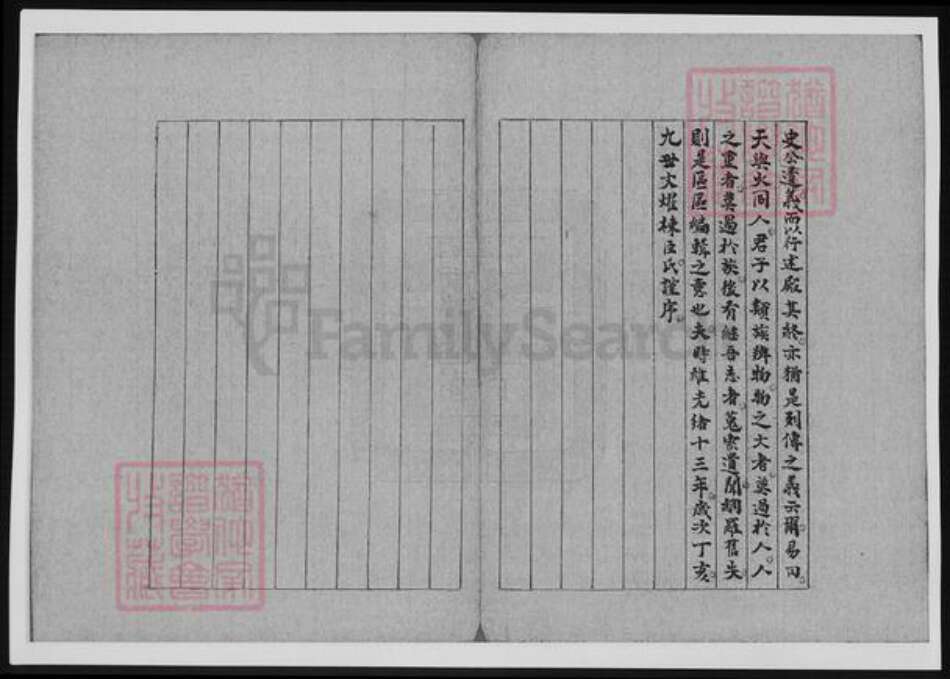 史公遺義而以行述殿其終亦猶是列傳之義云爾易曰
天與火同人君子以類族辨物物之大者莫過於人人
之重者莫過於族後有繼吾志者蒐案遺聞網羅舊失
則是區區編輯之意也夫時維光緒十三年歲次丁亥
九世文燿棟臣氏謹序
FamilySearch
譜學會
收藏